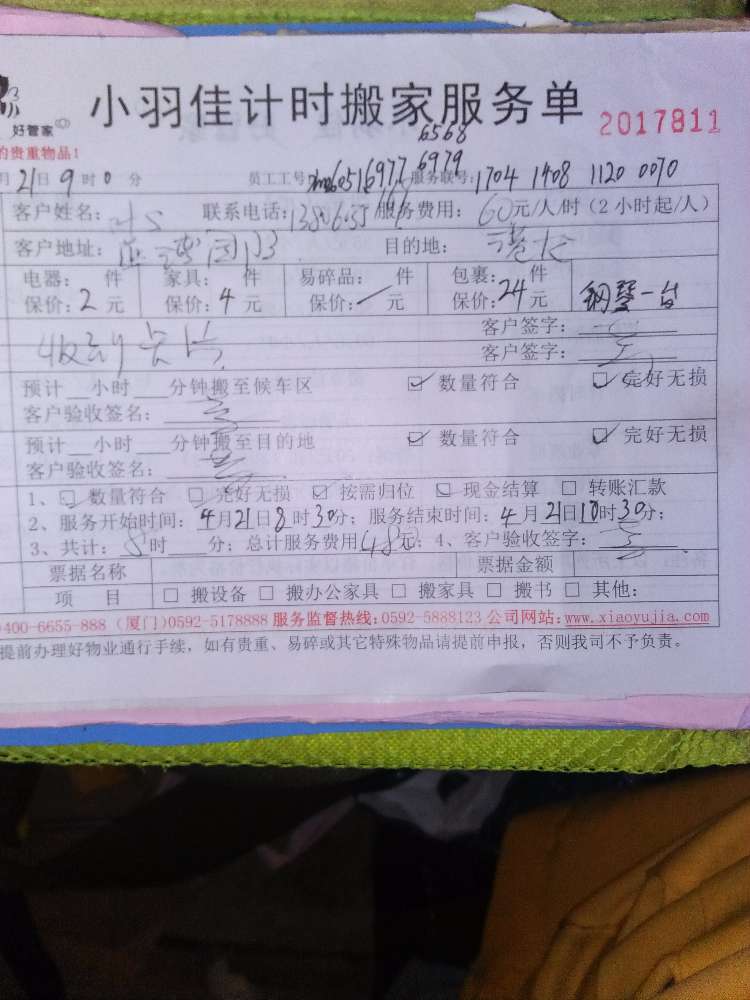 小羽佳计时搬家服务单 2017811
好管家
的贵重物品!
月21日9时0分 员工工号: 服务联号: 1704 1408 1120 0070
6568
6979
客户姓名: 联系电话: 服务费用: 60元/人/时(2小时起/人)
客户地址: 目的地:
电器: 件 家具: 件 易碎品: 件 包裹: 件
保价: 2元 保价: 4元 保价: 元 保价: 24元 钢琴一台
客户签字:
客户签字:
预计__小时___分钟搬至候车区 数量符合 完好无损
客户验收签名:
预计__小时___分钟搬至目的地 数量符合 完好无损
客户验收签名:
1、 数量符合 完好无损 按需归位 现金结算 转账汇款
2、服务开始时间: 4月21日8时30分; 服务结束时间: 4月21日10时30分;
3、共计: 8时___分; 总计服务费用480元; 4、客户验收签字:
票据名称 票据金额
项 目 搬设备 搬办公家具 搬家具 搬书 其他:
400-6655-888 (厦门)0592-5178888 服务监督热线:0592-5888123 公司网站:www.xiaoyujia.com
提前办理好物业通行手续, 如有贵重、易碎或其它特殊物品请提前申报, 否则我司不予负责。